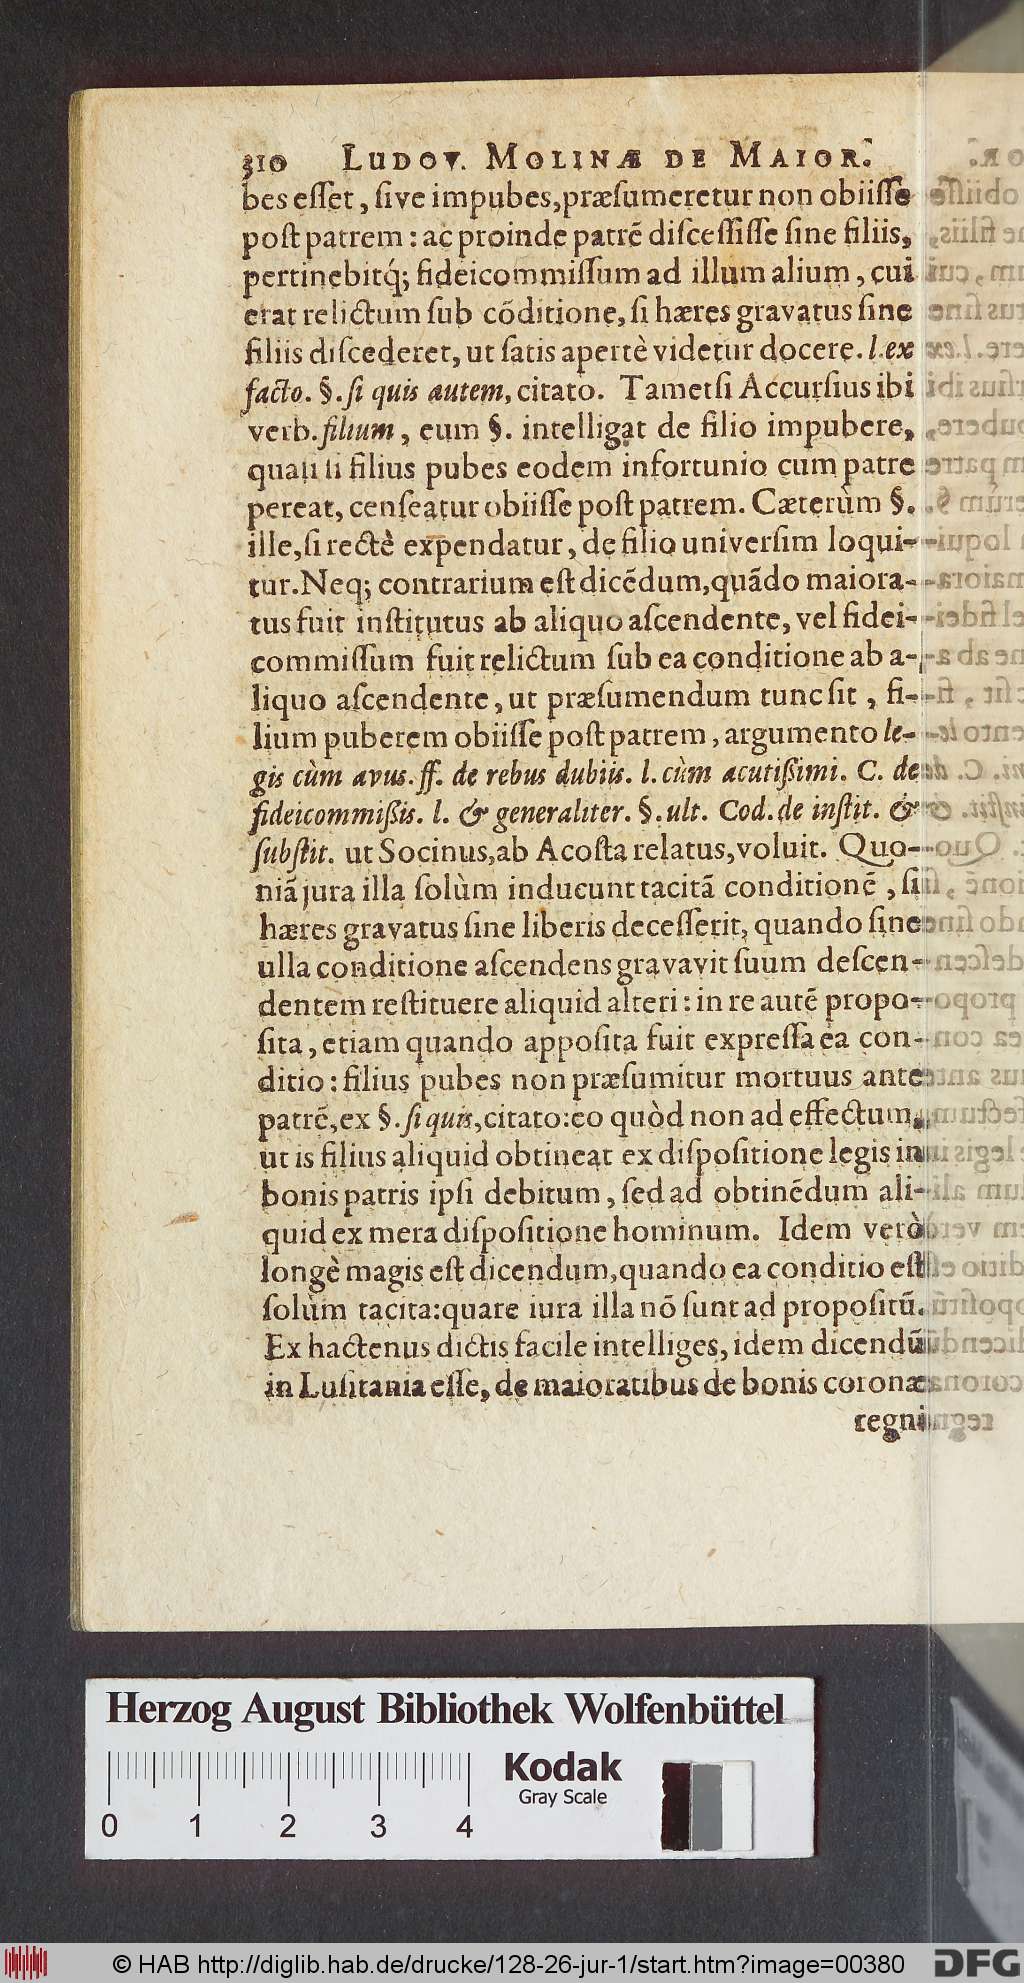 310 LUDOV. MOLINÆ DE MAIOR.
bes eſſet, ſive impubes, præſumeretur non obiiſſe
poſt patrem: ac proinde patrē diſceſſiſſe ſine filiis,
pertinebitq́; fideicommiſſum ad illum alium, cui
erat relictum ſub cōditione, ſi hæres gravatus ſine
filiis diſcederet, ut ſatis apertè videtur docere. l. ex
facto. §. ſi quis autem, citato. Tametſi Accurſius ibi
verb. filium, eum §. intelligat de filio impubere,
quaſi ſi filius pubes eodem infortunio cum patre
pereat, cenſeatur obiiſſe poſt patrem. Cæterùm §.
ille, ſi rectè expendatur, de filio univerſim loqui-
tur. Neq; contrarium eſt dicēdum, quādo maiora-
tus fuit inſtitutus ab aliquo aſcendente, vel fidei-
commiſſum fuit relictum ſub ea conditione ab a-
liquo aſcendente, ut præſumendum tunc ſit, fi-
lium puberem obiiſſe poſt patrem, argumento le-
gis cùm avus. ff. de rebus dubiis. l. cùm acutißimi. C. de
fideicommißis. l. & generaliter. §. ult. Cod. de inſtit. &
ſubſtit. ut Socinus, ab Acoſta relatus, voluit. Quo-
niā jura illa ſolùm inducunt tacitā conditionē, ſi
hæres gravatus ſine liberis deceſſerit, quando ſine
ulla conditione aſcendens gravavit ſuum deſcen-
dentem reſtituere aliquid alteri: in re autē propo-
ſita, etiam quando appoſita fuit expreſſa ea con-
ditio: filius pubes non præſumitur mortuus ante
patrē, ex §. ſi quis, citato: eo quòd non ad effectum,
ut is filius aliquid obtineat ex diſpoſitione legis in
bonis patris ipſi debitum, ſed ad obtinēdum ali-
quid ex mera diſpoſitione hominum. Idem verò
longè magis eſt dicendum, quando ea conditio eſt
ſolùm tacita: quare iura illa nō ſunt ad propoſitū.
Ex hactenus dictis facile intelliges, idem dicendū
in Luſitania eſſe, de maioratibus de bonis coronæ
regni
Herzog August Bibliothek Wolfenbüttel
Kodak
Gray Scale
0 1 2 3 4
© HAB http://diglib.hab.de/drucke/128-26-jur-1/start.htm?image=00380
DFG